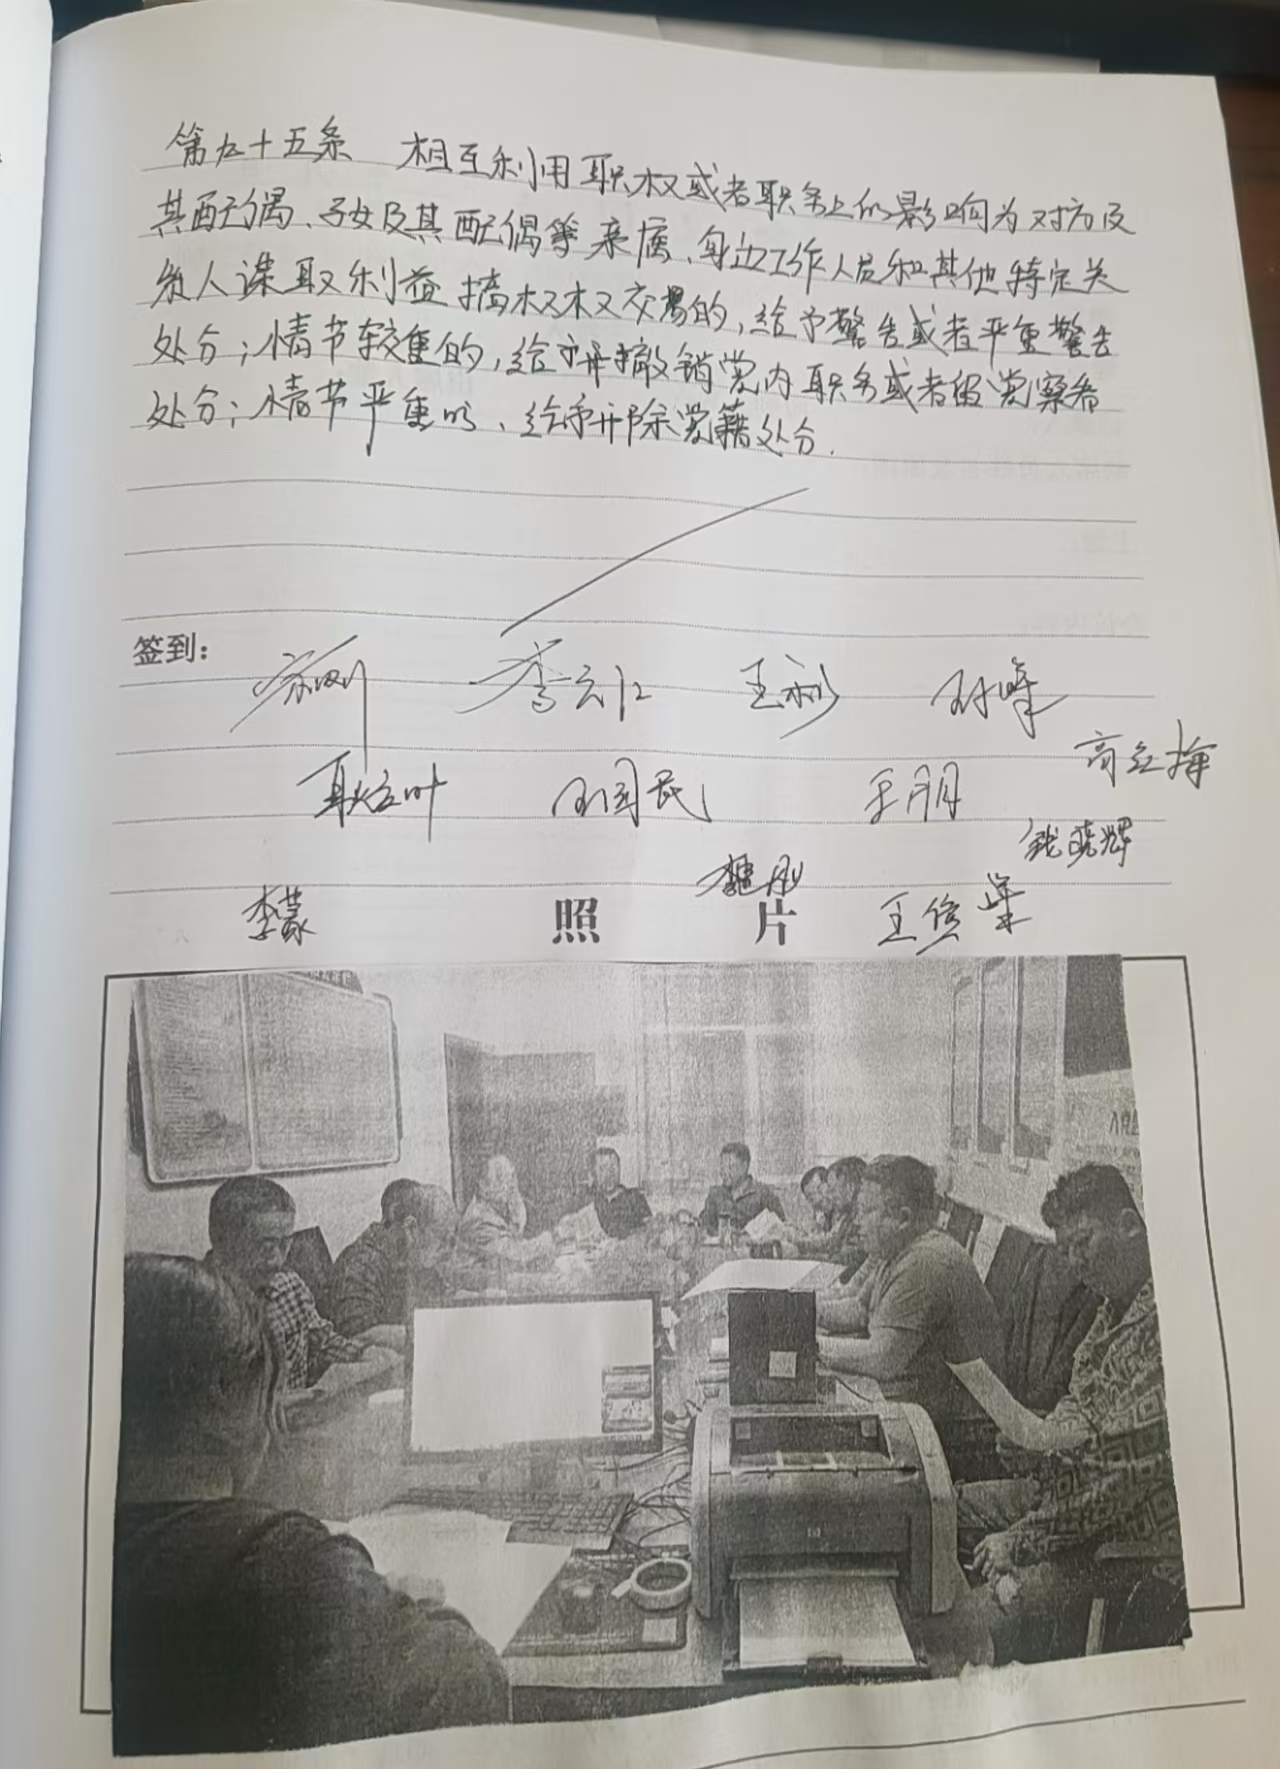 第九十五条 相互利用职权或者职务上的影响为对方及
其配偶、子女及其配偶等亲属、身边工作人员和其他特定关
系人谋取利益搞权权交易的,给予警告或者严重警告
处分;情节较重的,给予撤销党内职务或者留党察看
处分;情节严重的、给予开除党籍处分.
签到:
李云仁 王利 孙峰
高红梅
耿立叶 国民 王朋
钱晓辉
李蒙 照 片 魏彤 王俊峰
hp